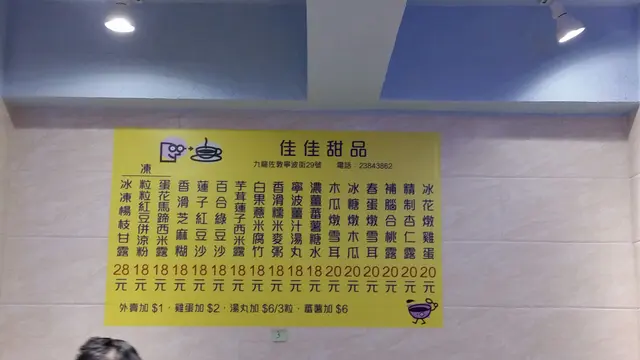 佳佳甜品
九龍佐敦寧波街29號 電話：23843862
凍
冰花燉雞蛋 20元
精制杏仁露 20元
補腦合桃露 20元
春蛋燉雪耳 20元
冰糖燉木瓜 20元
木瓜燉雪耳 20元
濃薑蕃薯糖水 18元
寧波薑汁湯丸 18元
香滑糯米麥粥 18元
白果薏米腐竹 18元
芋茸蓮子西米露 18元
百合綠豆沙 18元
蓮子紅豆沙 18元
香滑芝麻糊 18元
蛋花馬蹄西米露 18元
粒粒紅豆併涼粉 18元
冰凍楊枝甘露 28元
外賣加 $1，雞蛋加 $2，湯丸加 $6/3粒，蕃薯加 $6